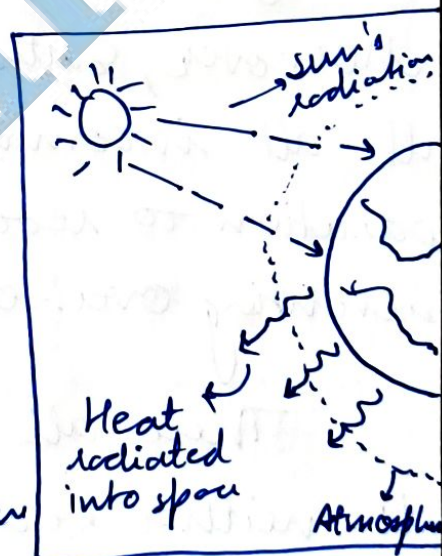 Sun's
radiation
Heat
radiated
into space
Atmosph